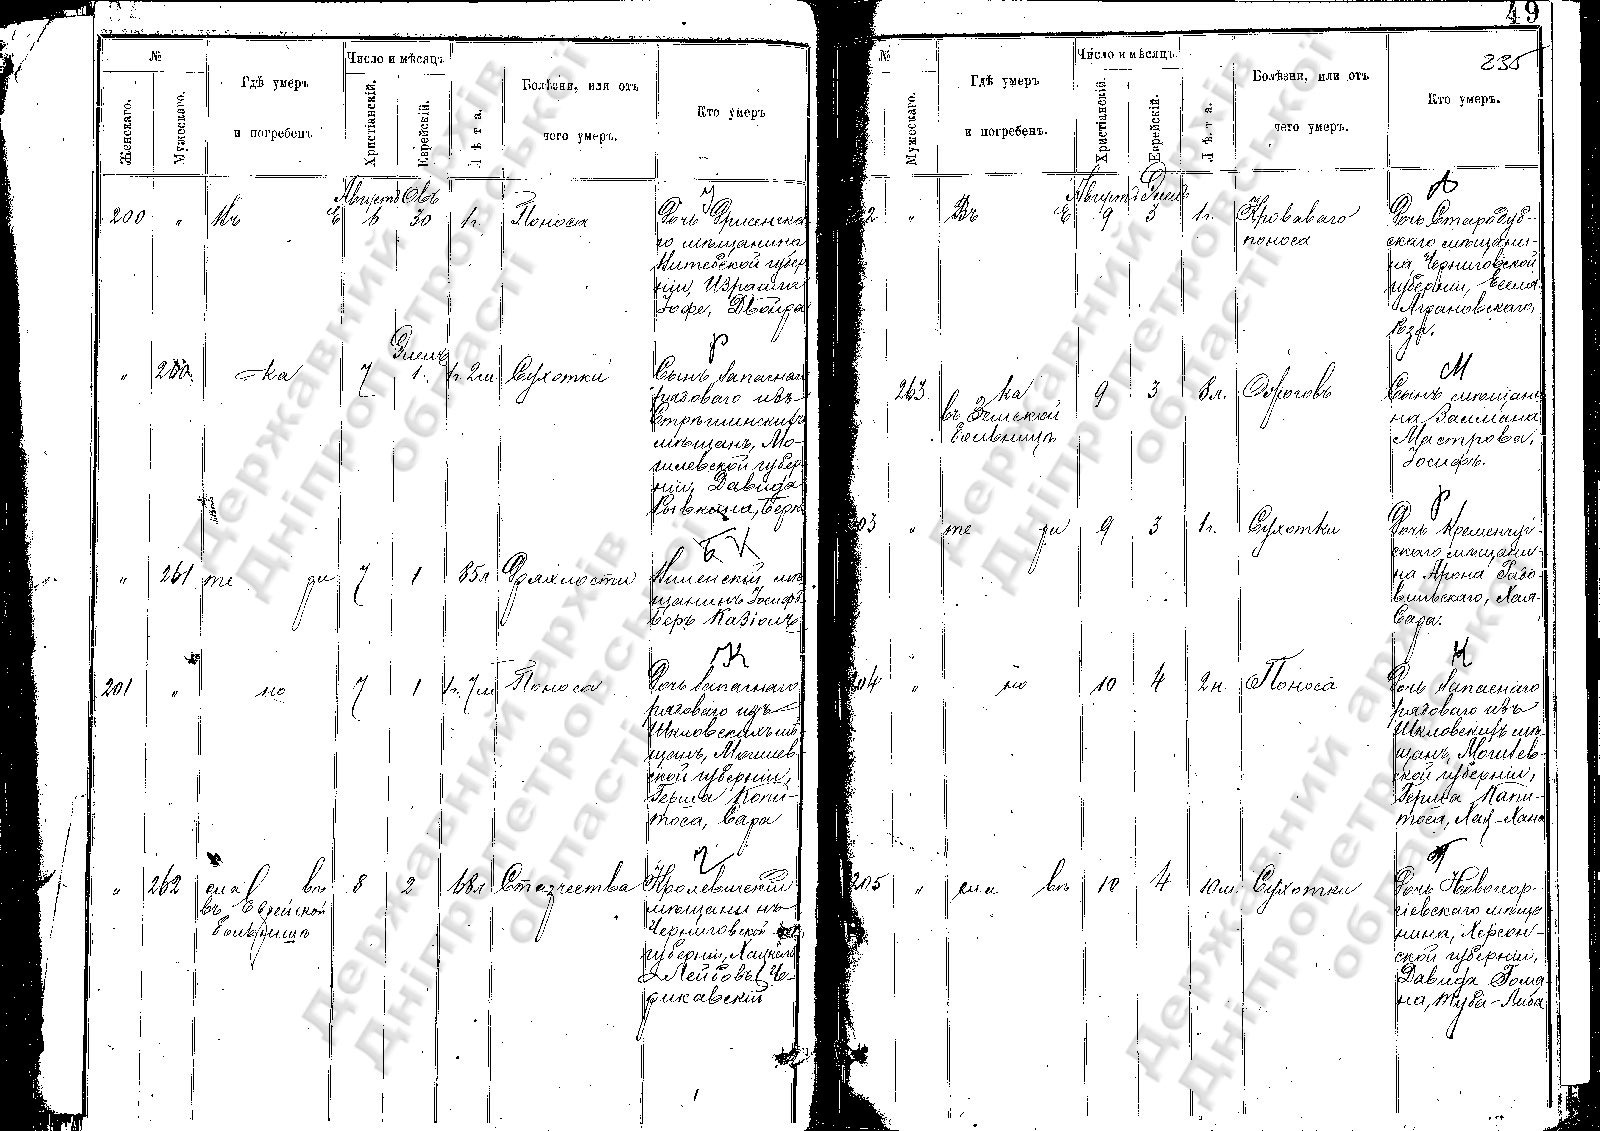 49
235
№
Женскаго.
Мужескаго.
Гдѣ умеръ
и погребенъ
Число и мѣсяцъ
Христіанскій.
Еврейскій.
Лѣта.
Болѣзни, или отъ
чего умеръ.
Кто умеръ
Августъ Овъ
200 " Въ Е 6 30 1г. Поноса
Дочь Дрисенска-
го мѣщанина
Витебской губер
ніи, Израиля
Іофе, Двойра
Р
Элелъ
" 260 ка 7 1. 1г. 2м Сухотки
Сынъ запаснаго
рядового изъ
Стрѣшинскихъ
мѣщанъ, Мо-
гилевской губер-
ніи, Давида
Рывкина, Берк
Б К
" 261 те ри 7 1 85л Дряхлости
Виленскій мѣ
щанинъ Іосифъ
Беръ
К
201 " но 7 1 1г. 7м Поноса
Дочь запаснаго
рядоваго изъ
Шкловскихъ мѣ-
щанъ, Могилев-
ской губерніи,
Герша Копи-
тоса, Сара
Ч
" 262 сла въ 8 2 68л Старчества
въ Еврейской
Больницѣ
Кролевецкій
мѣщанинъ
Черниговской
губерніи,
Лейбовъ Че-
рикавскій
№
Мужескаго.
Гдѣ умеръ
и погребенъ.
Число и мѣсяцъ
Христіанскій.
Еврейскій.
Лѣта.
Болѣзни, или отъ
чего умеръ.
Кто умеръ.
Августъ Элелъ
А
2 " Въ Е 9 3 1г. Кроваваго
поноса
Дочь Стародуб-
скаго мѣщани-
на, Черниговской
губерніи,
Аграновскаго,
М
263 ка 9 3 8л. Ожоговъ
въ Земской
Больницѣ
Сынъ мѣщани
на Залмана
Мастрова,
Іосифъ.
Р
03 " те ри 9 3 1г. Сухотки
Дочь Кременчуг-
скаго мѣщани-
на Арона
Хая-
Сара.
К
204 " но 10 4 2н. Поноса
Дочь запаснаго
рядоваго изъ
Шкловскихъ мѣ-
щанъ, Могилев-
ской губерніи,
Герша Капи-
тоса, Хая-Хана
205 " сла въ 10 4 10м. Сухотки
Дочь Новогеор-
гіевскаго мѣща
нина, Херсон-
ской губерніи,
Давида
на, Туба-Либа
Державний архів
Дніпропетровської
області
Державний архів
Дніпропетровської
області
Державний архів
Дніпропетровської
області
Державний архів
Дніпропетровської
області